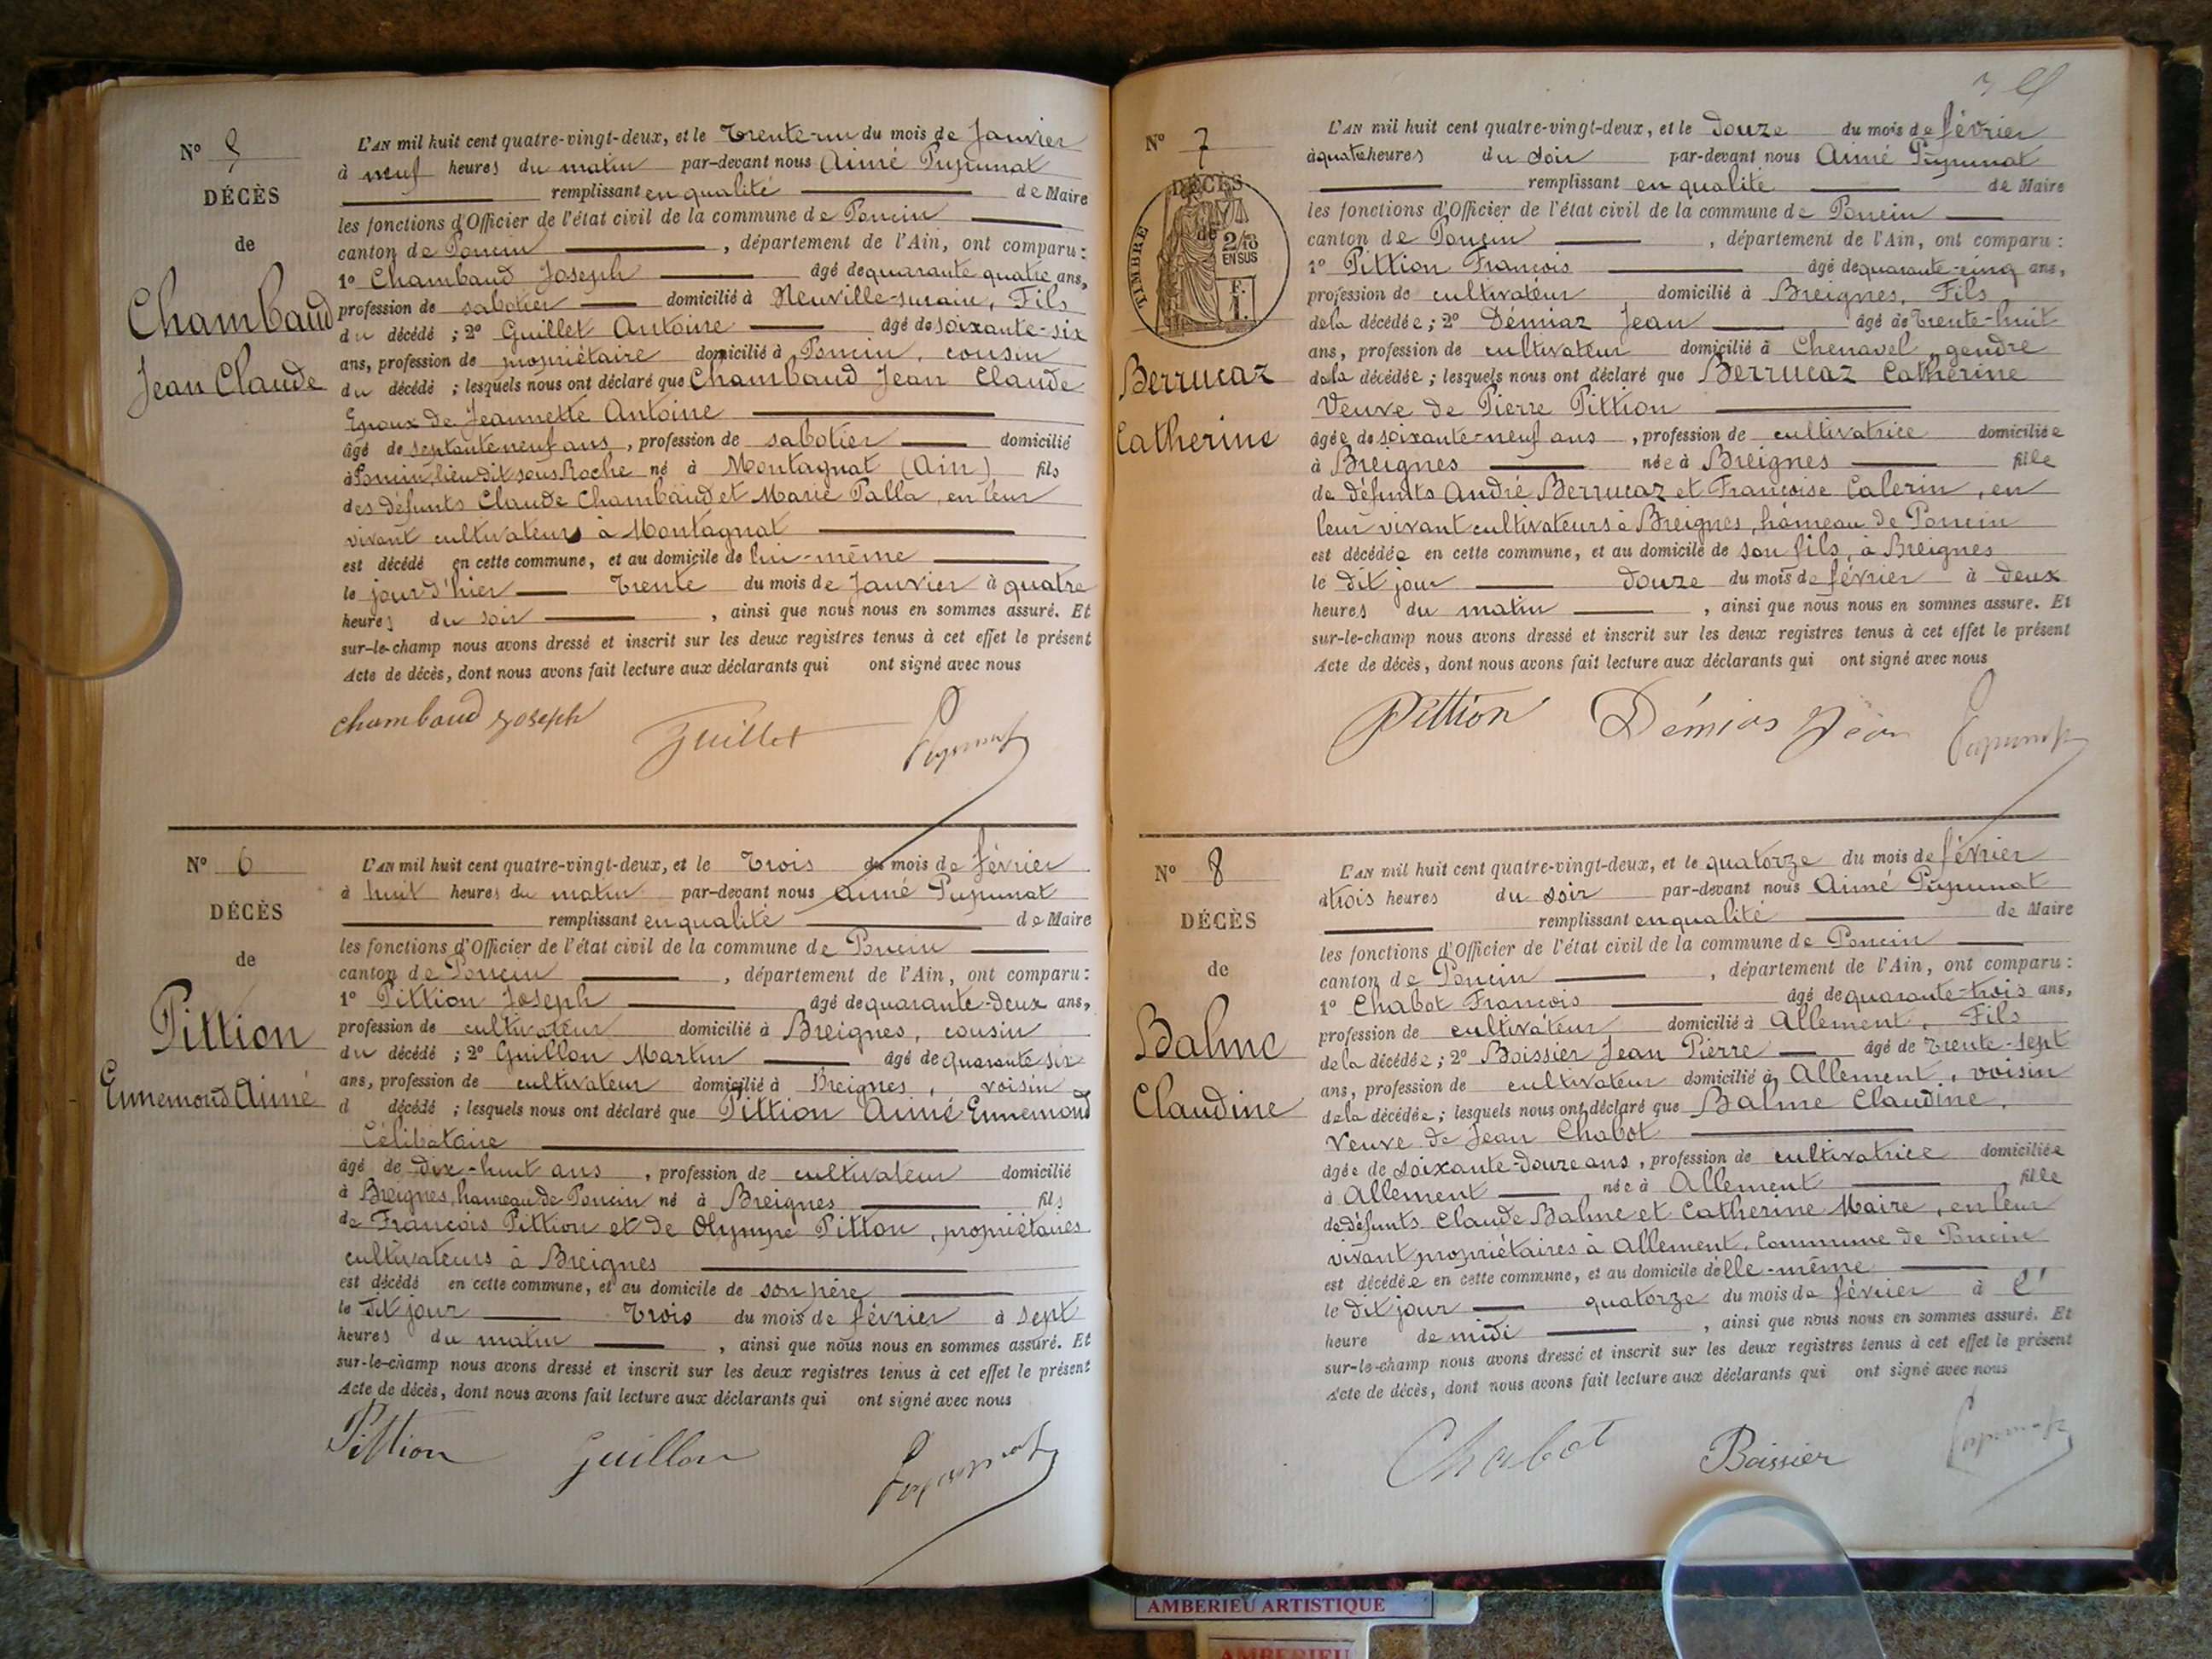 N° 5
DÉCÈS
de
Chambaud
Jean Claude
L'AN mil huit cent quatre-vingt-deux, et le trente-un du mois de Janvier
à neuf heures du matin par-devant nous Aimé Pupunat
remplissant en qualité de Maire
les fonctions d'Officier de l'état civil de la commune de Poncin
canton de Poncin, département de l'Ain, ont comparu :
1° Chambaud Joseph âgé de quarante quatre ans,
profession de sabotier domicilié à Neuville-surain, Fils
du décédé ; 2° Guillet Antoine âgé de soixante-six
ans, profession de propriétaire domicilié à Poncin, cousin
du décédé ; lesquels nous ont déclaré que Chambaud Jean Claude
Epoux de Jeannette Antoine
âgé de septante neuf ans, profession de sabotier domicilié
à Poncin, lieu dit sous Roche né à Montagnat (Ain) fils
des défunts Claude Chambaud et Marie Palla, en leur
vivant cultivateurs à Montagnat
est décédé en cette commune, et au domicile de lui-même
le jour d'hier trente du mois de Janvier à quatre
heures du soir, ainsi que nous nous en sommes assuré. Et
sur-le-champ nous avons dressé et inscrit sur les deux registres tenus à cet effet le présent
Acte de décès, dont nous avons fait lecture aux déclarants qui ont signé avec nous
chambaud joseph Guillet Pupunat
N° 6
DÉCÈS
de
Pittion
Ennemond Aimé
L'AN mil huit cent quatre-vingt-deux, et le trois du mois de février
à huit heures du matin par-devant nous Aimé Pupunat
remplissant en qualité de Maire
les fonctions d'Officier de l'état civil de la commune de Poncin
canton de Poncin, département de l'Ain, ont comparu :
1° Pittion Joseph âgé de quarante-deux ans,
profession de cultivateur domicilié à Breignes, cousin
du décédé ; 2° Guillon Martin âgé de quarante six
ans, profession de cultivateur domicilié à Breignes, voisin
d décédé ; lesquels nous ont déclaré que Pittion Aimé Ennemond
Célibataire
âgé de dix-huit ans, profession de cultivateur domicilié
à Breignes, hameau de Poncin né à Breignes fils
de François Pittion et de Olympe Pitton, propriétaires
cultivateurs à Breignes
est décédé en cette commune, et au domicile de son père
le dit jour trois du mois de février à sept
heures du matin, ainsi que nous nous en sommes assuré. Et
sur-le-champ nous avons dressé et inscrit sur les deux registres tenus à cet effet le présent
Acte de décès, dont nous avons fait lecture aux déclarants qui ont signé avec nous
Pittion Guillon Pupunat
N° 7
DÉCÈS
de
TIMBRE
2/10
EN SUS
F.
1.
Berrucaz
Catherine
L'AN mil huit cent quatre-vingt-deux, et le douze du mois de février
à quatre heures du soir par-devant nous Aimé Pupunat
remplissant en qualité de Maire
les fonctions d'Officier de l'état civil de la commune de Poncin
canton de Poncin, département de l'Ain, ont comparu :
1° Pittion François âgé de quarante-cinq ans,
profession de cultivateur domicilié à Breignes, Fils
de la décédée ; 2° Démiaz Jean âgé de trente-huit
ans, profession de cultivateur domicilié à Chenavel, gendre
de la décédée ; lesquels nous ont déclaré que Berrucaz Catherine
Veuve de Pierre Pittion
âgée de soixante-neuf ans, profession de cultivatrice domiciliée
à Breignes née à Breignes fille
de défunts André Berrucaz et Françoise Calerin, en
leur vivant cultivateurs à Breignes, hameau de Poncin
est décédée en cette commune, et au domicile de son fils, à Breignes
le dit jour douze du mois de février à deux
heures du matin, ainsi que nous nous en sommes assuré. Et
sur-le-champ nous avons dressé et inscrit sur les deux registres tenus à cet effet le présent
Acte de décès, dont nous avons fait lecture aux déclarants qui ont signé avec nous
Pittion Démias Jean Pupunat
N° 8
DÉCÈS
de
Balme
Claudine
L'AN mil huit cent quatre-vingt-deux, et le quatorze du mois de février
à trois heures du soir par-devant nous Aimé Pupunat
remplissant en qualité de Maire
les fonctions d'Officier de l'état civil de la commune de Poncin
canton de Poncin, département de l'Ain, ont comparu :
1° Chabot François âgé de quarante-trois ans,
profession de cultivateur domicilié à Allement, Fils
de la décédée ; 2° Boissier Jean Pierre âgé de trente-sept
ans, profession de cultivateur domicilié à Allement, voisin
de la décédée ; lesquels nous ont déclaré que Balme Claudine,
Veuve de Jean Chabot
âgée de soixante-douze ans, profession de cultivatrice domiciliée
à Allement née à Allement fille
de défunts Claude Balme et Catherine Maire, en leur
vivant propriétaires à Allement, Commune de Poncin
est décédée en cette commune, et au domicile d'elle-même
le dit jour quatorze du mois de février à l'
heure de midi, ainsi que nous nous en sommes assuré. Et
sur-le-champ nous avons dressé et inscrit sur les deux registres tenus à cet effet le présent
Acte de décès, dont nous avons fait lecture aux déclarants qui ont signé avec nous
Chabot Boissier Pupunat
AMBERIEU ARTISTIQUE
AMBERIEU